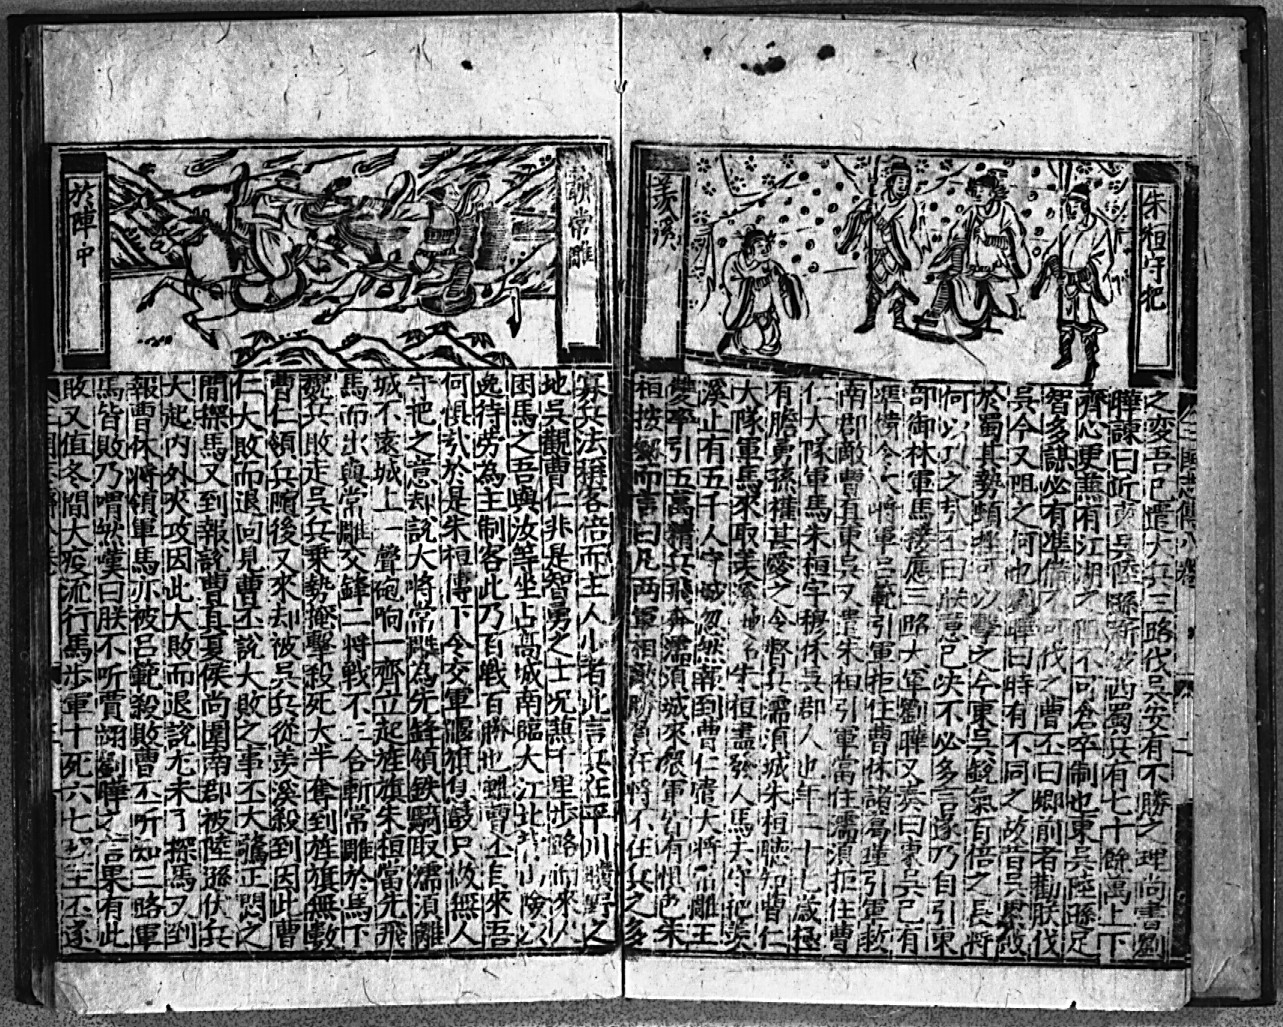 朱桓守把
羨溪
之変吾已遣大兵三路伐吳安有不勝之理尚書劉
曄諫曰近東吳陸遜新破西蜀兵有七十餘萬上下
齊心更兼有江湖之阻不可倉卒制也東吳陸遜足
智多謀必有准備不可伐之曹丕曰卿前者勸朕伐
吳今又阻之何也劉曄曰時有不同之故昔吳累敗
於蜀其勢頓挫可以擊之今東吳銳氣百倍之長將
何以
之丕曰朕意已決不必多言遂乃自引東
部御林軍馬接應三路大軍劉曄又奏曰東吳已有
準備令
將軍呂範引軍拒住曹休諸葛瑾引軍救
南郡敵曹真東吳又遣朱桓引軍當住濡湏拒住曹
仁大隊軍馬朱桓字穆休吳郡人也年二十七歲極
有膽勇孫權甚愛之令督兵濡湏城朱桓聴知曹仁
大隊軍馬來取羨溪地名朱桓盡發人馬去守把羨
溪止有五千人守城忽然南到曹仁遣大將常雕王
雙率引五萬精兵飛奔濡湏城來衆軍皆有懼色朱
桓按劍而言曰凡两軍相敵勝負在將不在兵之多
朝常雕
於陣中
寡兵法稱客倍而主人少者此言兵在平川曠野之
地吳觀曹仁非是智勇之士况兼千里步路而來人
困馬之吾與汝等坐占高城南臨大江北
山險以
逸待勞為主制客此乃百戰百勝也雖曹丕自來吾
何懼哉於是朱桓傳下令交軍偃旗息鼓只做無人
守把之意却說大將常雕為先鋒領鉄騎取濡湏離
城不遠城上一聲砲响一齊立起旌旗朱桓當先飛
馬而出與常雕交鋒二將戰不三合斬常雕於馬下
魏兵敗走吳兵乗勢掩擊殺死大半奪到旌旗無數
曹仁領兵隨後又來却被吳兵從羨溪殺到因此曹
仁大敗而退回見曹丕說大敗之事丕大驚正悶之
間探馬又到報說曹真夏侯尚圍南郡被陸遜伏兵
大起内外夾攻因此大敗而退說尤未了探馬又到
報曹休將領軍馬亦被呂範殺敗曹丕听知三路軍
馬皆敗乃喟然嘆曰朕不听賈詡劉曄之言果有此
敗又值冬間大疫流行馬步軍十死六七
曹丕遂
三國志傳八卷